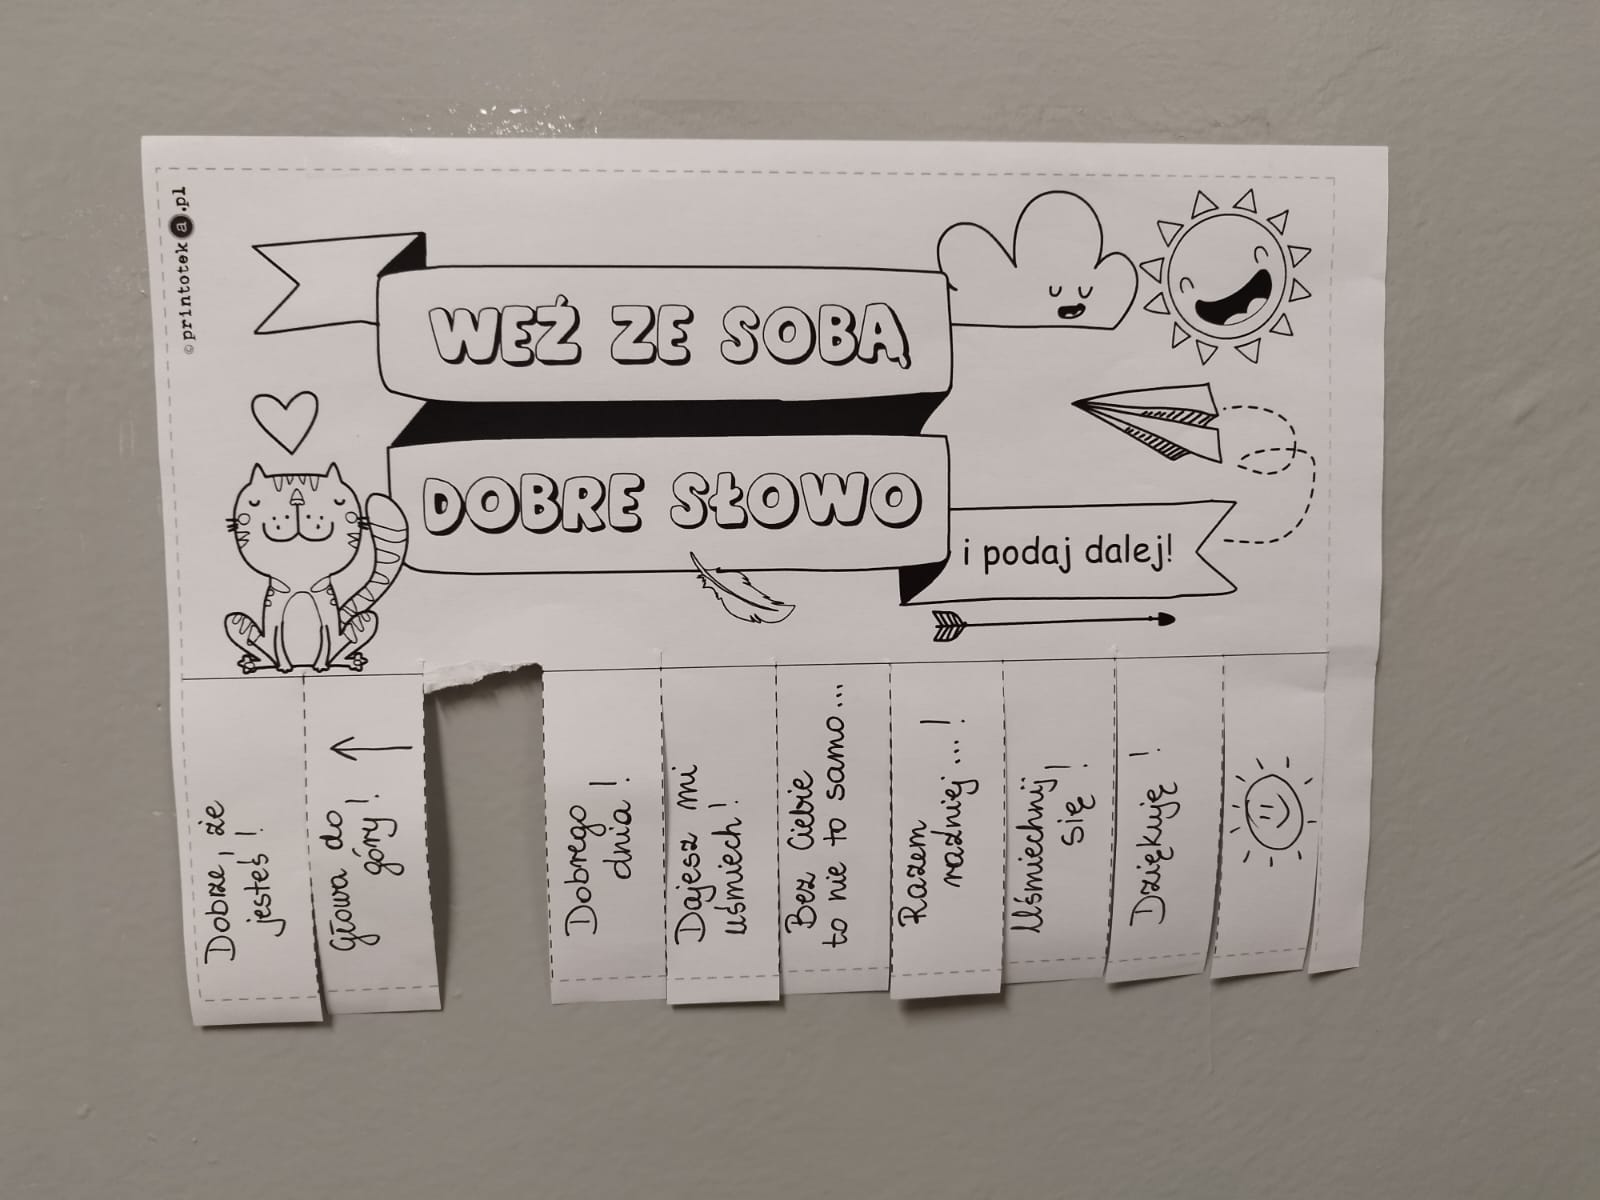 © printoteka.pl
WEŹ ZE SOBĄ
DOBRE SŁOWO
i podaj dalej!
Dobrze, że
jesteś!
Głowa do
góry!
Dobrego
dnia!
Dajesz mi
uśmiech!
Bez Ciebie
to nie to samo...
Razem
raźniej...!
Uśmiechnij
się!
Dziękuję!